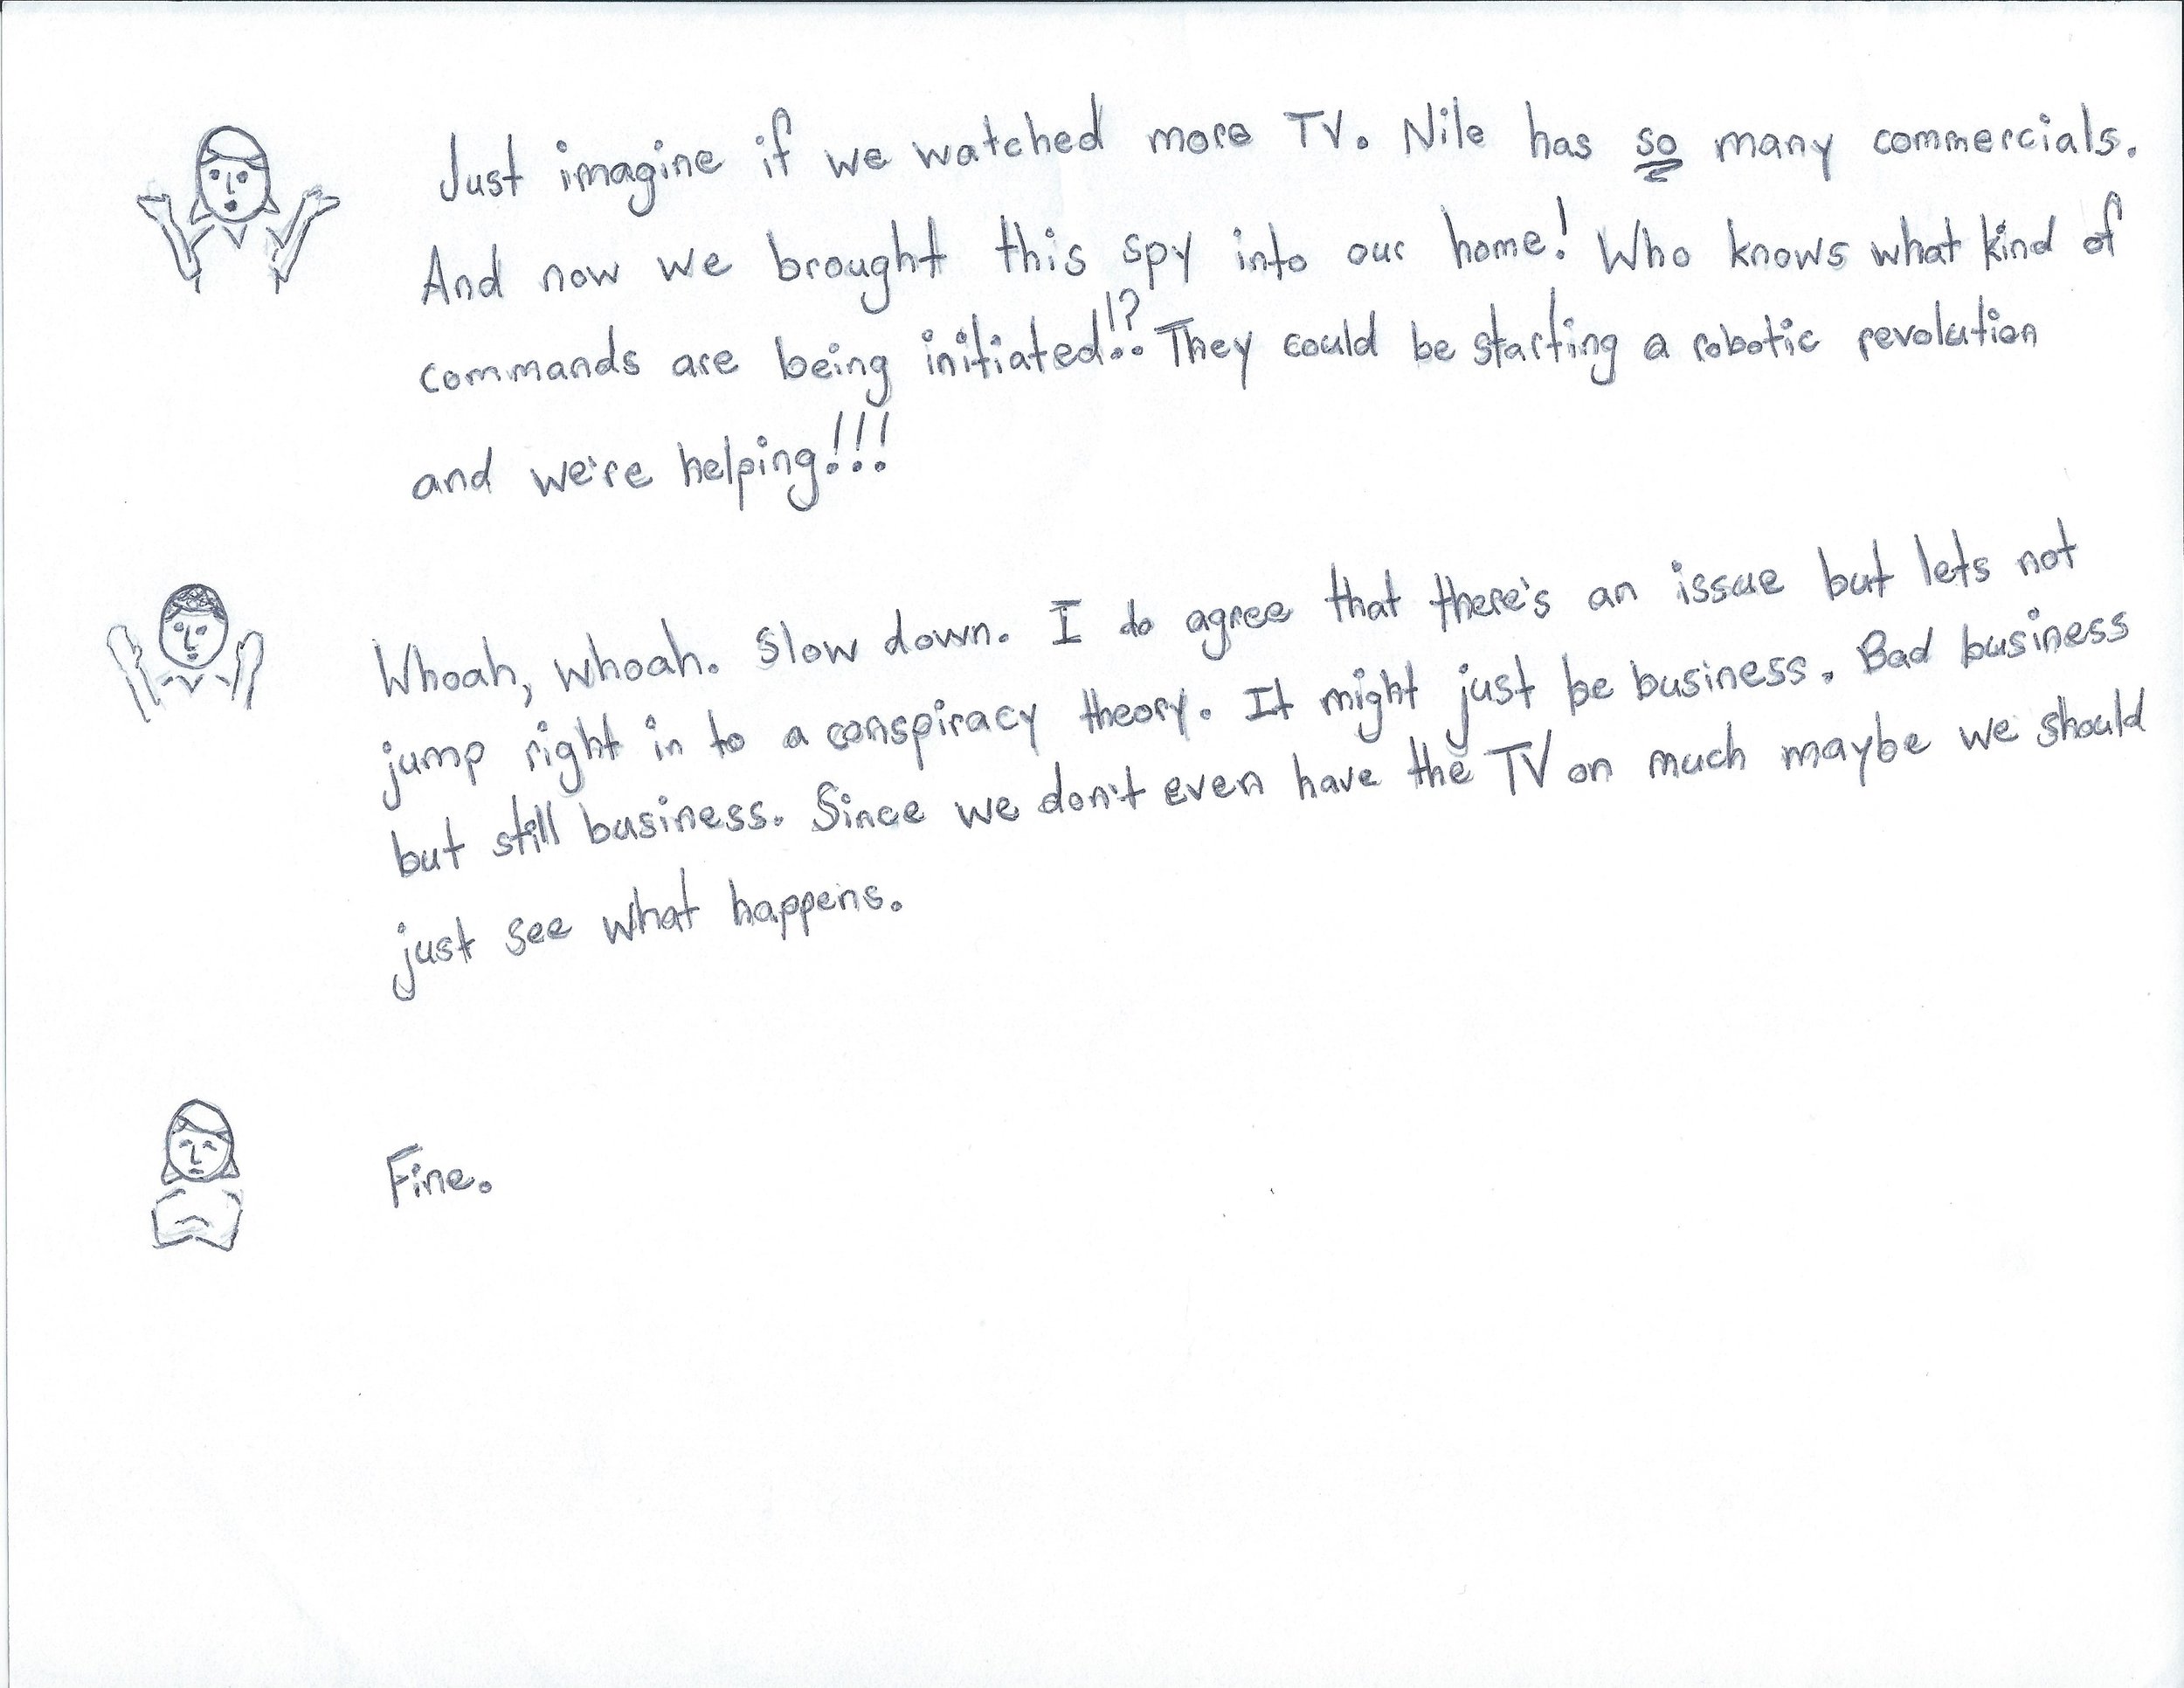 Just imagine if we watched more TV. Nile has so many commercials.
And now we brought this spy into our home! Who knows what kind of
commands are being initiated!!? They could be starting a robotic revolution
and we're helping!!!
Whoah, whoah. Slow down. I do agree that there's an issue but lets not
jump right in to a conspiracy theory. It might just be business. Bad business
but still business. Since we don't even have the TV on much maybe we should
just see what happens.
Fine.